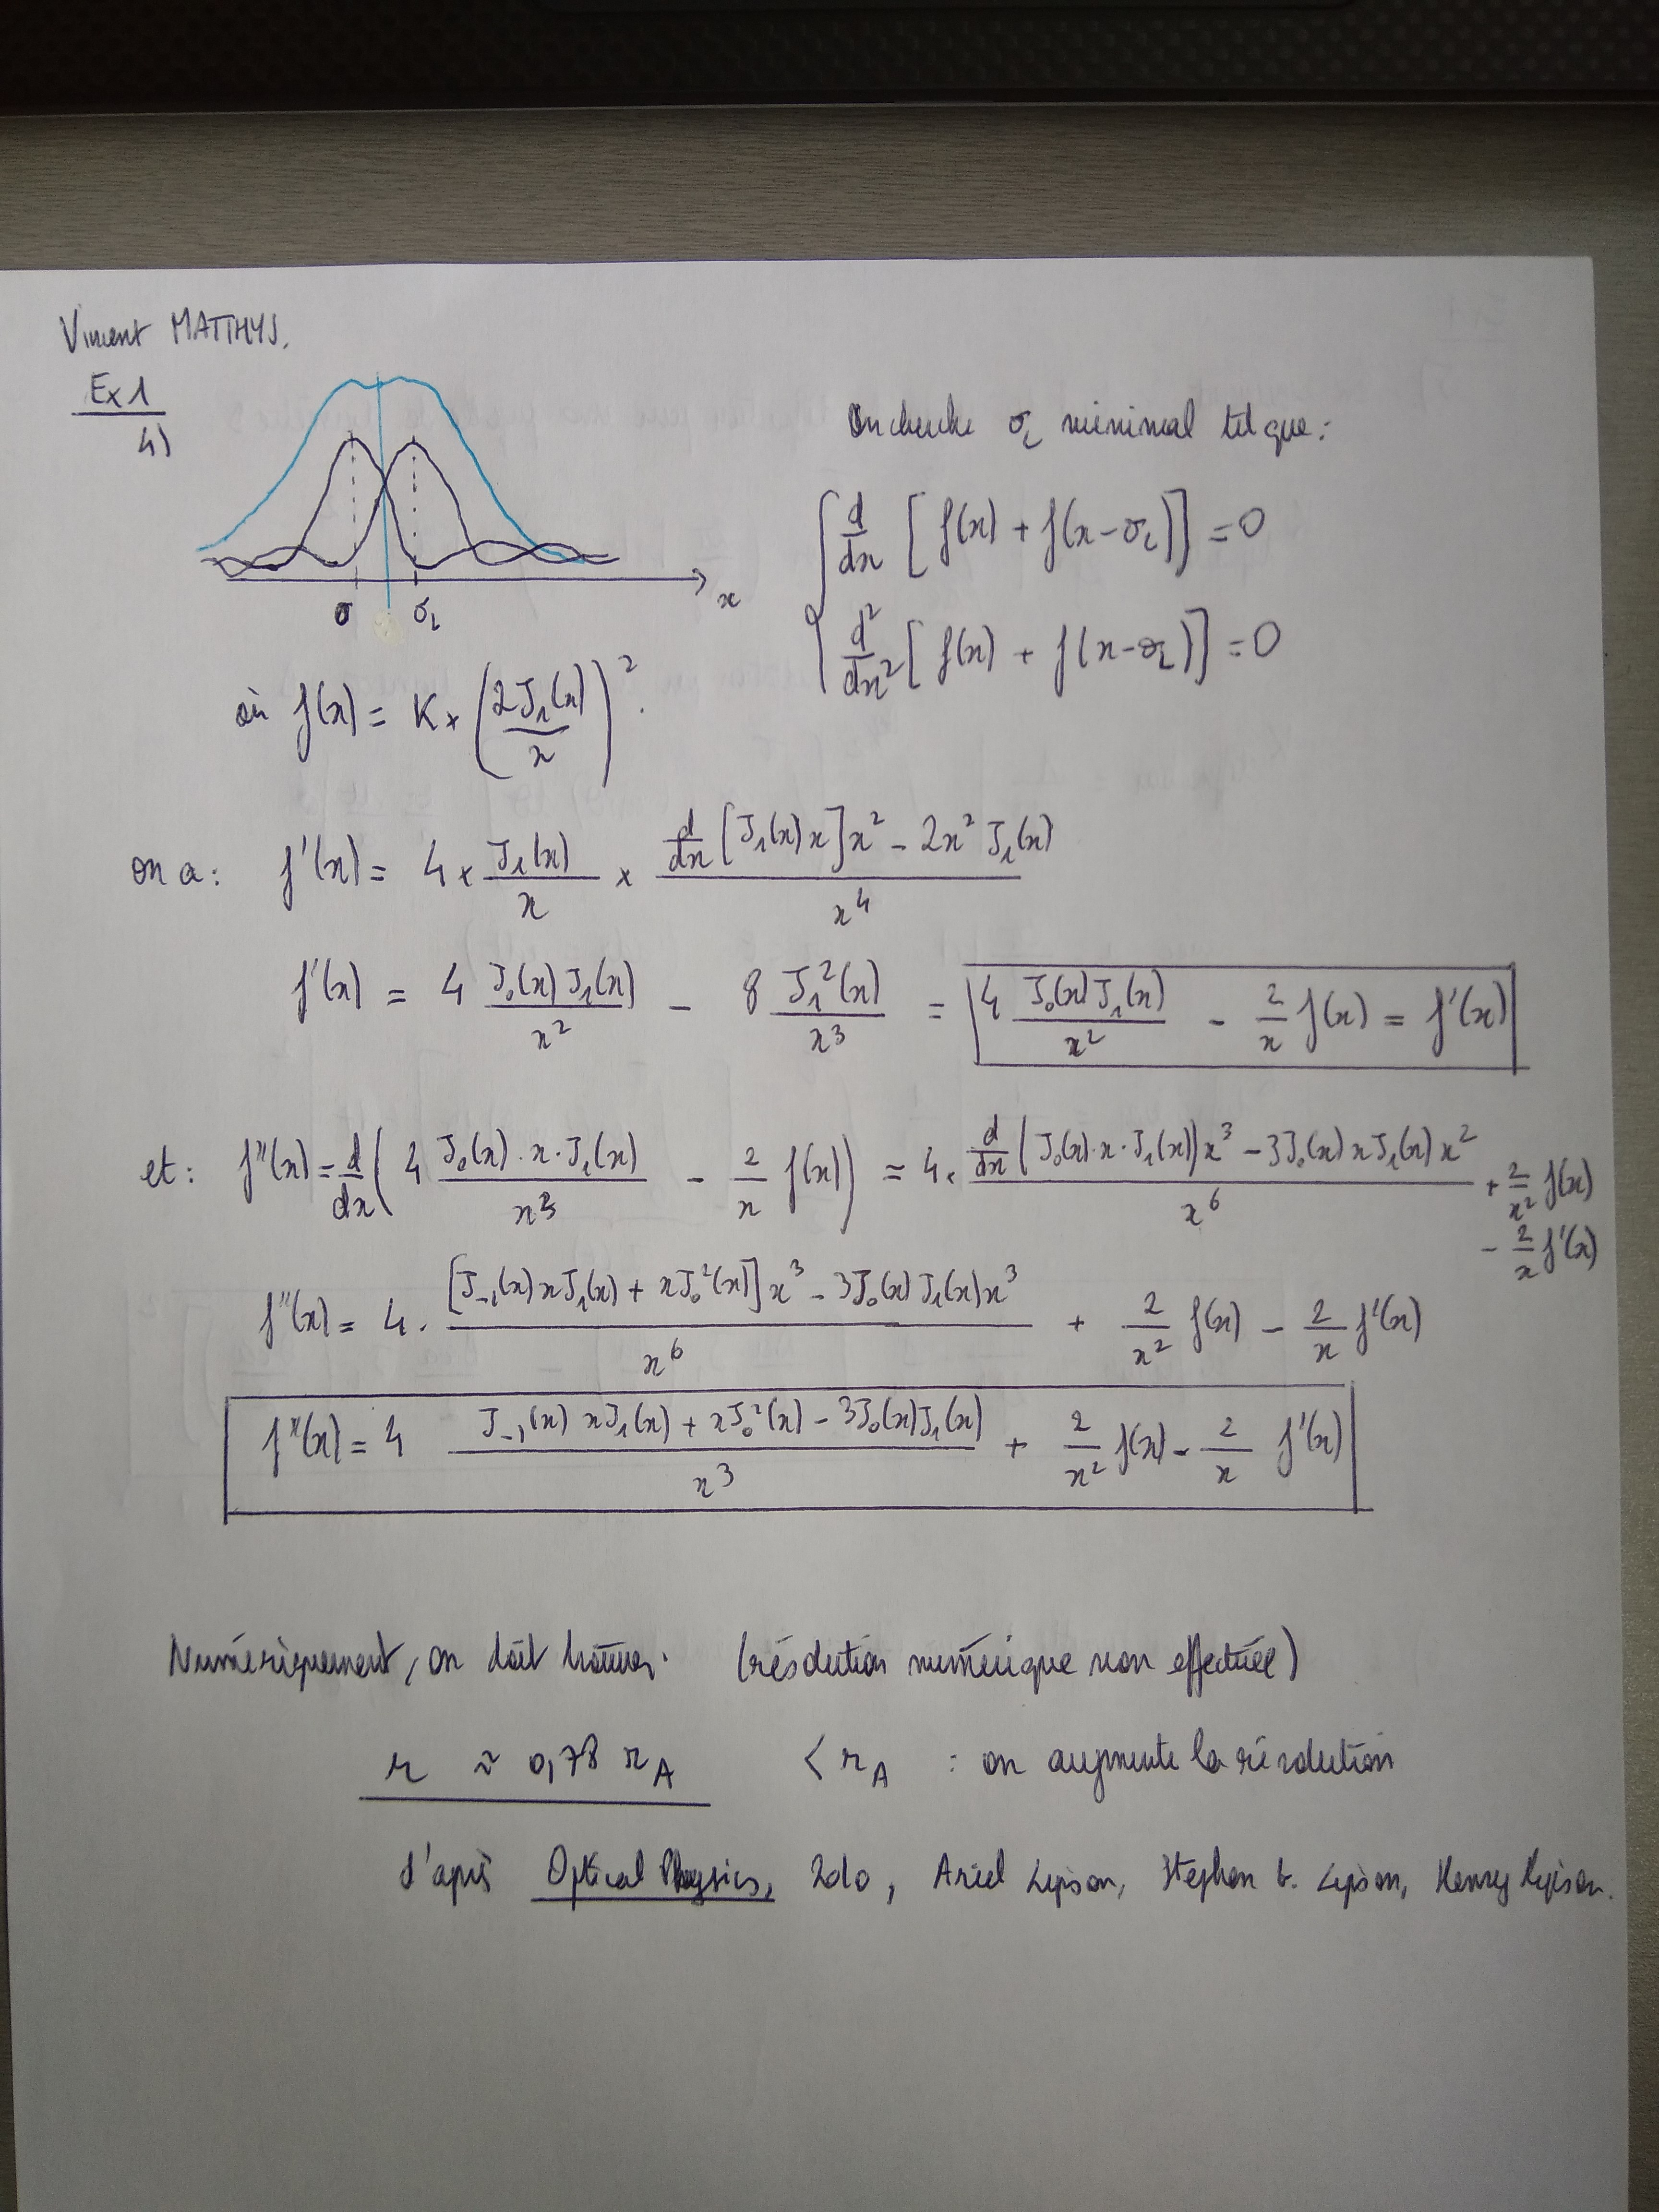 Vincent MATTHYS.
Ex 1
4)
On cherche σ₂ minimal tel que :
d/dx [f(x) + f(x-σ₂)] = 0
d²/dx² [f(x) + f(x-σ₂)] = 0
σ σ₂ x
où f(x) = K × (2J₁(x)/x)².
on a : f'(x) = 4 × J₁(x)/x × (d/dx [J₁(x)x]x² - 2x² J₁(x))/x⁴
f'(x) = 4 J₀(x)J₁(x)/x² - 8 J₁²(x)/x³ = 4 J₀(x)J₁(x)/x² - 2/x f(x) = f'(x)
et : f''(x) = d/dx (4 J₀(x)·x·J₁(x)/x³ - 2/x f(x)) = 4· (d/dx (J₀(x)·x·J₁(x))x³ - 3J₀(x)xJ₁(x)x²)/x⁶ + 2/x² f(x) - 2/x f'(x)
f''(x) = 4· ([J₋₁(x)xJ₁(x) + xJ₀²(x)]x³ - 3J₀(x)J₁(x)x³)/x⁶ + 2/x² f(x) - 2/x f'(x)
f''(x) = 4 (J₋₁(x) xJ₁(x) + xJ₀²(x) - 3J₀(x)J₁(x))/x³ + 2/x² f(x) - 2/x f'(x)
Numériquement, on doit trouver : (résolution numérique non effectuée)
r ≈ 0,78 r_A < r_A : on augmente la résolution
d'après Optical Physics, 2010, Ariel Lipson, Stephen G. Lipson, Henry Lipson.